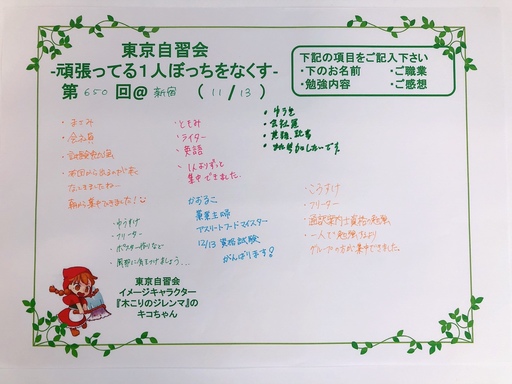 東京自習会
-頑張ってる１人ぼっちをなくす-
第 650 回@ 新宿 ( 11 / 13 )
下記の項目をご記入下さい
・下のお名前 ・ご職業
・勉強内容 ・ご感想
・まさみ
・会社員
朝から集中できました！
・ともみ
・ライター
・英語
・1人よりずっと
集中できました。
・会社員
・英語、読書
・ゆうすけ
・フリーター
・ポスター作りなど
・風邪に気を付けましょう…
かおるこ
薬業主婦
アスリートフードマイスター
12/13 資格試験
がんばります！
・こうすけ
・フリーター
・通訳案内士資格の勉強
・一人で勉強するより
グループの方が集中できました。
東京自習会
イメージキャラクター
『木こりのジレンマ』の
キコちゃん